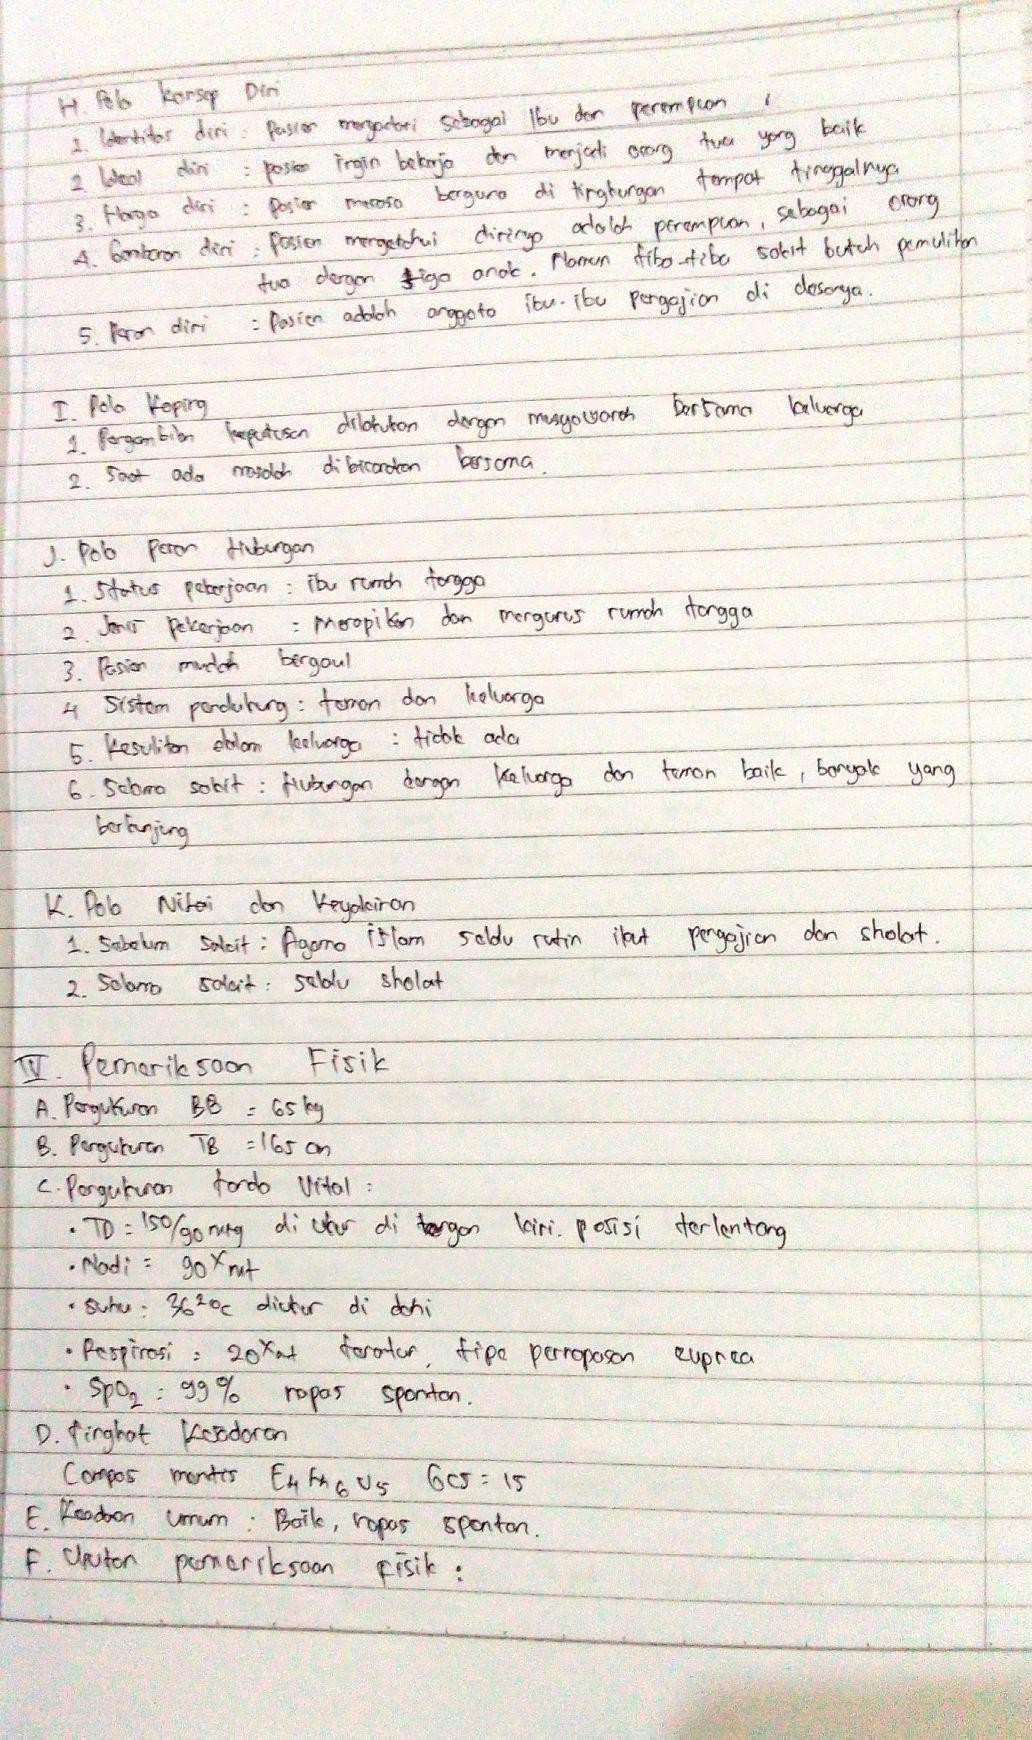 H. Pola Konsep Diri
1. Identitas diri : Pasien mengatasi sebagai Ibu dan perempuan
2. Ideal diri : pasien ingin bekerja dan menjadi orang tua yang baik
3. Harga diri : Pasien merasa berguna di lingkungan tempat tinggalnya
4. Gambaran diri : Pasien mengetahui dirinya adalah perempuan, sebagai orang
tua dengan tiga anak. Namun tiba-tiba sakit butuh pemulihan
5. Peran diri : Pasien adalah anggota ibu-ibu pengajian di desanya.
I. Pola Koping
1. Pengambilan keputusan dilakukan dengan musyawarah bersama keluarga
2. Saat ada masalah dibicarakan bersama.
J. Pola Peran Hubungan
1. Status pekerjaan : ibu rumah tangga
2. Jenis pekerjaan : Merapikan dan mengurus rumah tangga
3. Pasien mudah bergaul
4 Sistem pendukung : teman dan keluarga
5. Kesulitan dalam keluarga : tidak ada
6. Selama sakit : Hubungan dengan keluarga dan teman baik, banyak yang
berkunjung
K. Pola Nilai dan Keyakinan
1. Sebelum sakit : Agama islam selalu rutin ikut pengajian dan sholat.
2. Selama sakit : selalu sholat
IV. Pemeriksaan Fisik
A. Pengukuran BB = 65 kg
B. Pengukuran TB = 165 cm
C. Pengukuran tanda Vital :
• TD = 150/90 mmHg di ukur di tangan kiri. posisi terlentang
• Nadi = 90 x/mnt
• Suhu : 36²°c diukur di dahi
• Respirasi = 20 x/mnt teratur, tipe pernapasan eupnea
• SpO₂ : 99% napas spontan.
D. Tingkat Kesadaran
Compos mentis E4 M6 V5 GCS = 15
E. Keadaan umum : Baik, napas spontan.
F. Urutan pemeriksaan Fisik :